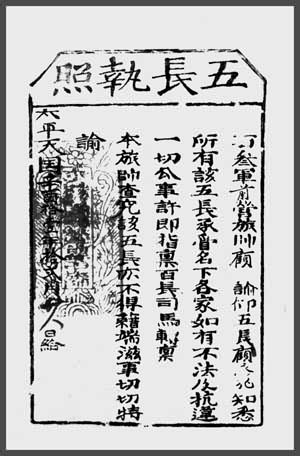 五長執照
叁軍前營旅帥顧 諭仰五長顧知悉
所有該五長承管名下各家如有不法及抗違
一切公事許即指禀百長司馬轉禀
本旅帥查究該五長亦不得藉端滋事切切特
諭
太平天囯辛酉拾壹年拾月日給